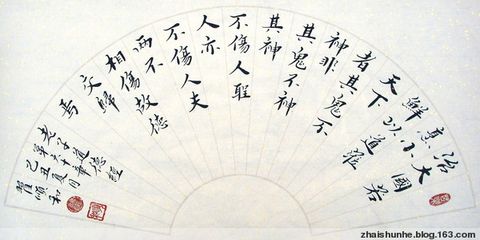 治大國若
烹小
鮮以道蒞
天下
者其鬼不
神非
其鬼不神
其神
不傷人聖
人亦
不傷人夫
兩不
相傷故德
交歸
焉
老子道德經
第六十章
己丑夏月
翟順和
zhaishunhe.blog.163.com